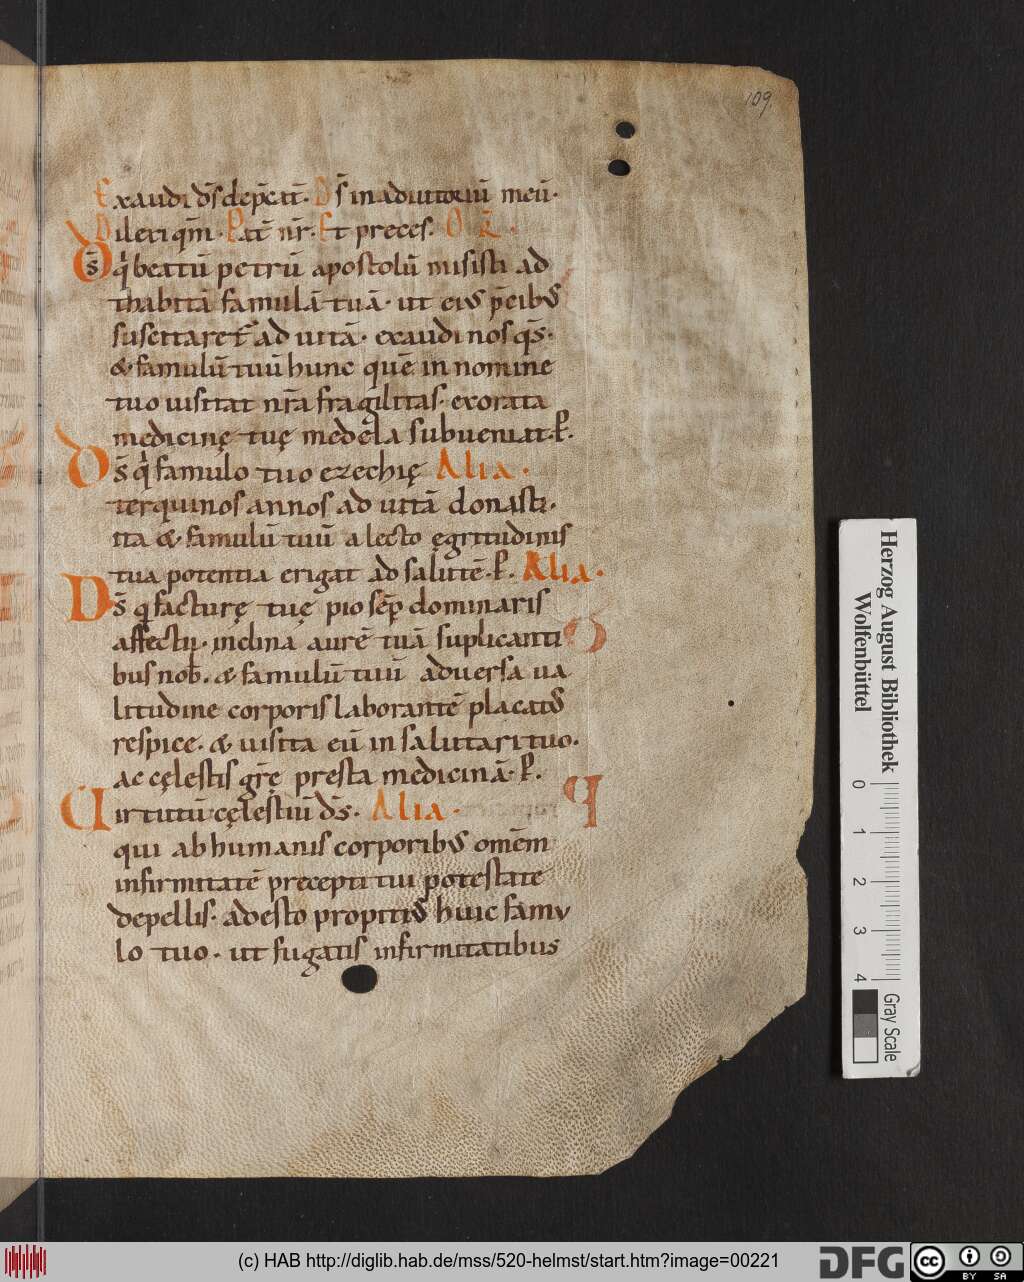 109.
Exaudi d̄s dep̄cat̄. D s̄ in adiutoriū meū.
Dilexi qm̄. Pat̄ nr̄. Et preces. O R̄.
Ds̄ qͥ beatū petrū apostolū misisti ad
thabitā famulā tuā. ut eiꝰ p̄cibꝰ
suscitaret ad uitā. exaudi nos qs̄.
& famulū tuū hunc quē in nomine
tuo uisitat nr̄a fragilitas. exorata
medicinę tuę medela subueniat. P̄.
Ds̄ qͥ famulo tuo ezechię Alia.
ter quinos annos ad uitā donasti.
ita & famulū tuū a lecto egritudinis
tua potentia erigat ad salutē. P̄. Alia.
Ds̄ q facturę tuę pio sēp dominaris
affectu. inclina aurē tuā suplicanti
bus nob̄. & famulū tuū aduersa ua
litudine corporis laborantē placatꝰ
respice. & uisita eū in salutari tuo.
ac cęlestis gr̄ę presta medicinā. P̄.
Uirtutū cęlestiū ds̄. Alia.
qui ab humanis corporibꝰ omēm
infirmitatē precepti tui potestate
depellis. adesto propitiꝰ huic famu
lo tuo. ut fugatis infirmitatibus
Herzog August Bibliothek
Wolfenbüttel
0 1 2 3 4
Gray Scale
(c) HAB http://diglib.hab.de/mss/520-helmst/start.htm?image=00221
DFG
CC BY SA